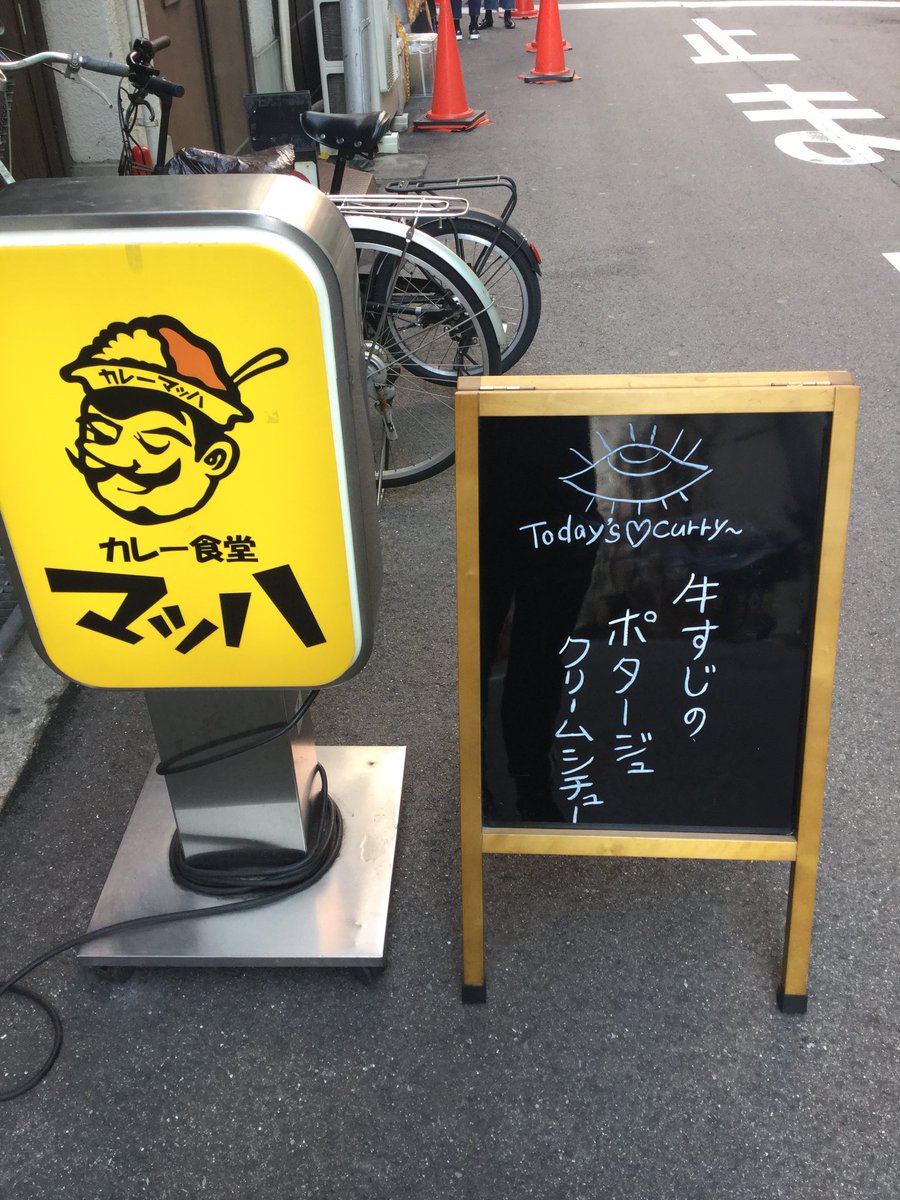 カレーマッハ
カレー食堂
マッハ
Today's♡curry~
牛すじの
ポタージュ
クリームシチュー
止ま